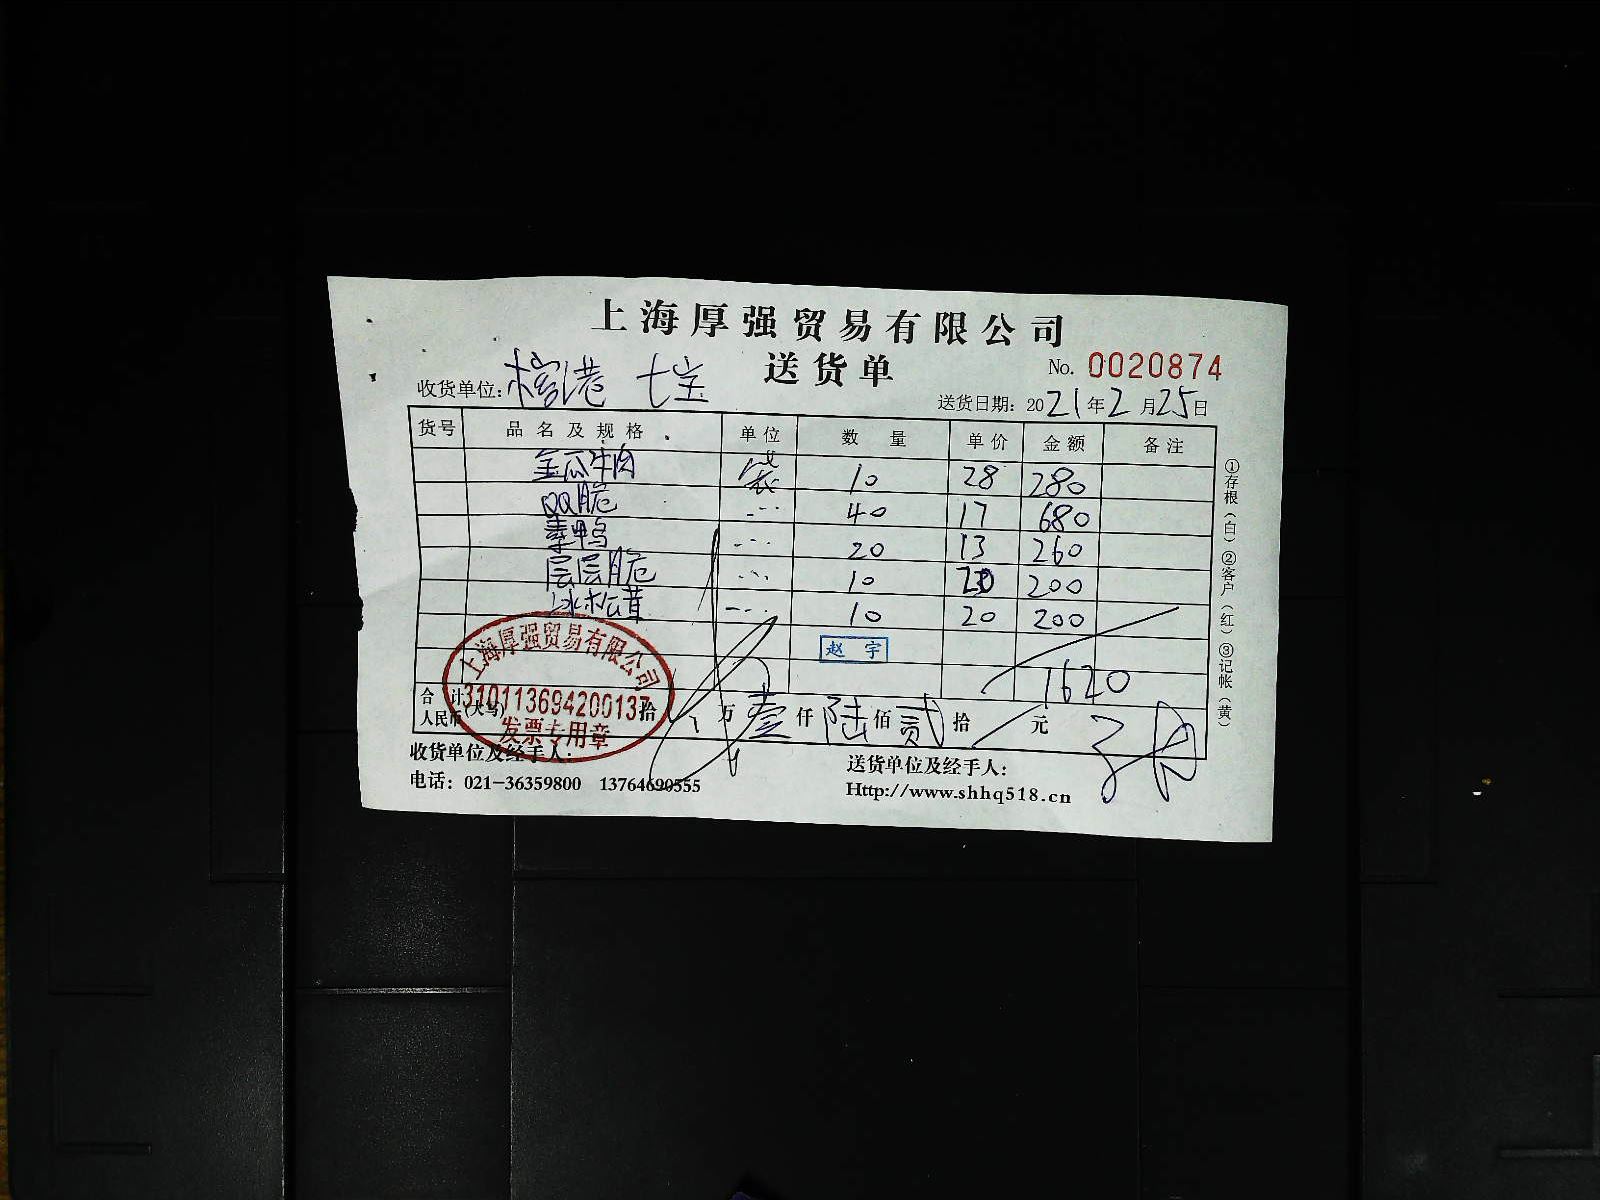 上海厚强贸易有限公司
送货单
No. 0020874
收货单位: 榕港 七宝
送货日期: 2021年2月25日
货号 品名及规格 单位 数量 单价 金额 备注
金瓜牛肉 袋 10 28 280
QQ脆 ---- 40 17 680
素鸭 ---- 20 13 260
层层脆 ---- 10 20 200
冰松茸 ---- 10 20 200
赵宇
1620
合计人民币(大写) 拾 万 壹 仟 陆 佰 贰 拾 元
上海厚强贸易有限公司
310113694200137
发票专用章
收货单位及经手人:
送货单位及经手人:
电话: 021-36359800 13764690555
Http://www.shhq518.cn
①存根(白)②客户(红)③记帐(黄)